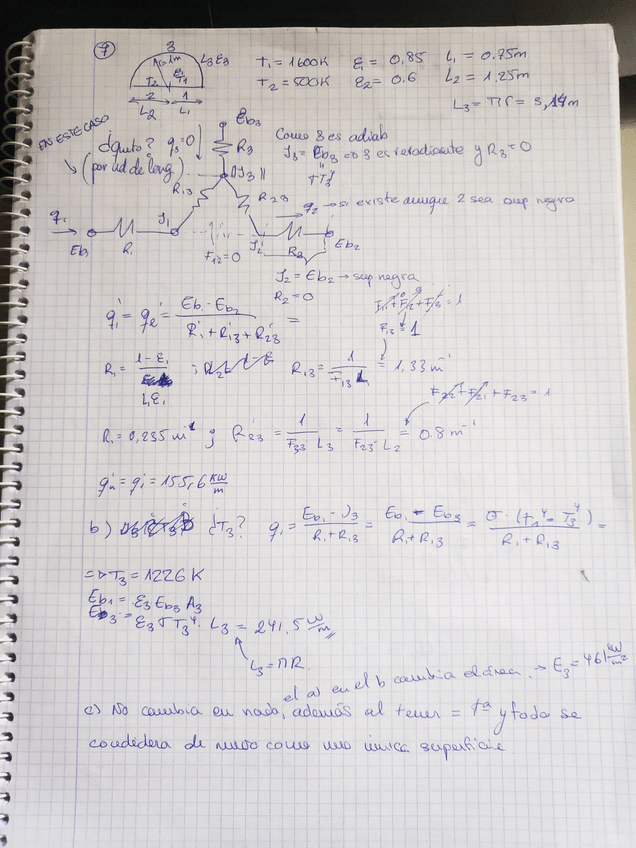 7
3
r=1m L3 ε3
T2 ε1 T1
2 1
L2 L1
T1 = 1600K ε1 = 0,85 L1 = 0,75m
T2 = 500K ε2 = 0.6 L2 = 1,25m
L3 = πr = 3,14m
EN ESTE CASO
¿qneto? q3=0
(por ud de long)
Eb3
R3
J3
Como 3 es adiab
J3 = Eb3 => 3 es reradiante y R3 = 0
σT3^4
R13 R23
q2 → si existe aunque 2 sea sup negra
q1
Eb1 R1 J1 F12=0 J2 R2 Eb2
J2 = Eb2 → sup negra
R2 = 0
q1' = q2' = (Eb1 - Eb2) / (R1' + R13' + R23') =
F11 + F12 + F13 = 1
F13 = 1
R1 = (1-ε1) / (L1ε1) ; R13 = 1 / (F13 L1) = 1,33 m^-1
F22 + F21 + F23 = 1
R1 = 0,235 m^-1 ; R23 = 1 / (F33 L3) = 1 / (F23·L2) = 0.8 m^-1
q1' = 155,6 kW/m
b) ¿T3? q1 = (Eb1 - J3) / (R1+R13) = (Eb1 - Eb3) / (R1+R13) = σ·(T1^4 - T3^4) / (R1+R13) =
=> T3 = 1226 K
Eb1 = ε3 Eb3 A3
Eb3 = ε3 σ T3^4 · L3 = 241,5 W/m
L3 = πR
el a) en el b cambia el área → E3 = 461 kW/m²
c) No cambia en nada, además al tener = tª y toda se
considera de nuevo como una única superficie